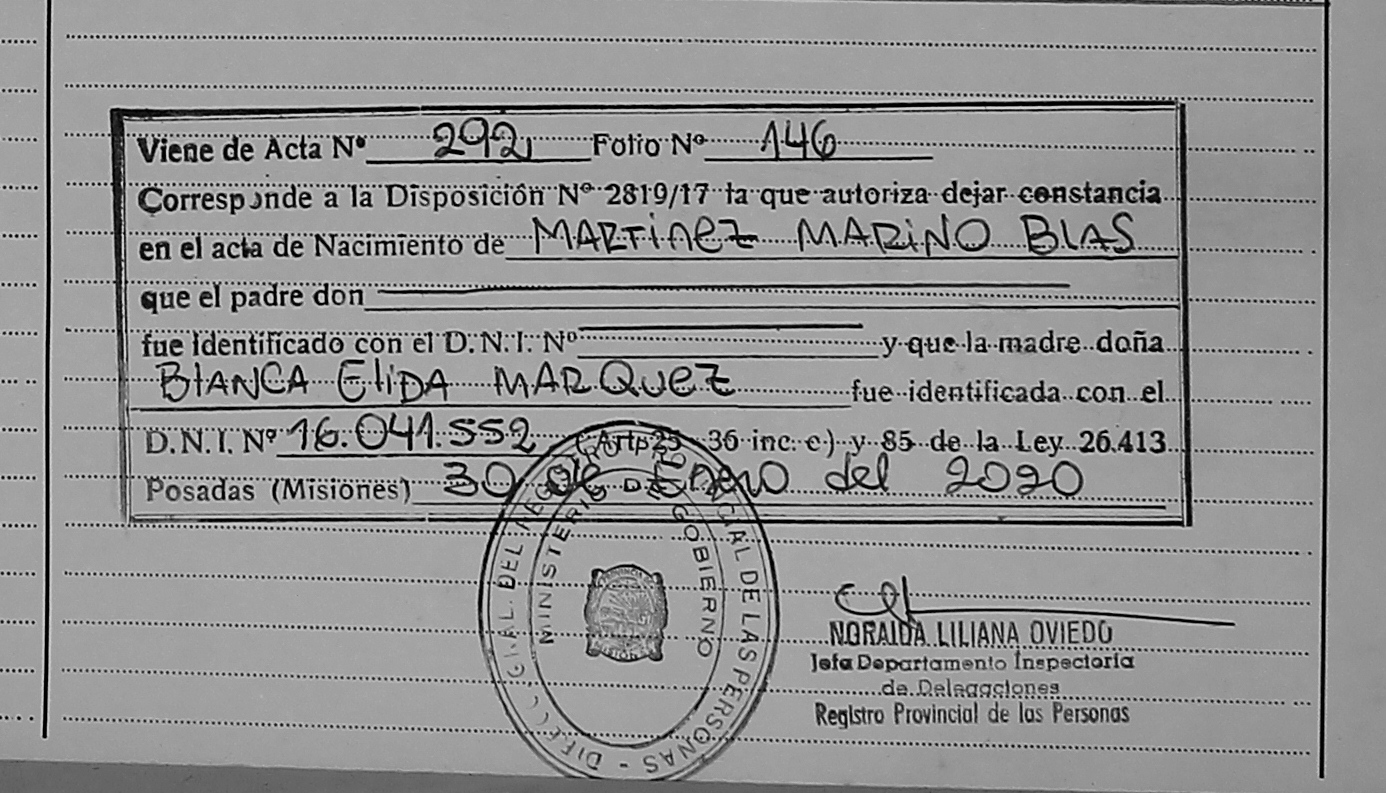 Viene de Acta Nº 292 Folio Nº 146
Corresponde a la Disposición Nº 2819/17 la que autoriza dejar constancia
en el acta de Nacimiento de MARTiNEZ MARiNO BLAS
que el padre don
fue identificado con el D.N.I. Nº y que la madre doña
BLANCA EliDA MARQUEZ fue identificada con el
D.N.I. Nº 16.041.552 (Artº 25 36 inc. c) y 85 de la Ley 26.413
Posadas (Misiones) 30 de Enero del 2020
DEL REGISTRO PROVINCIAL DE LAS PERSONAS
MINISTERIO DE GOBIERNO
NORAIDA LILIANA OVIEDO
Jefa Departamento Inspectoria
de Delegaciones
Registro Provincial de las Personas